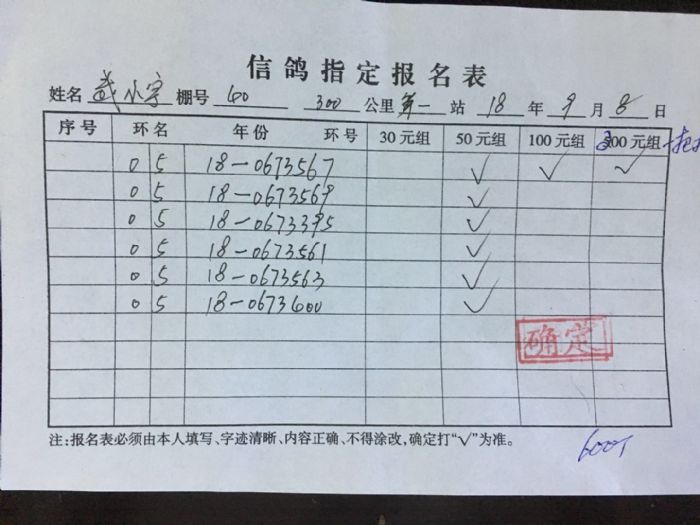 信鸽指定报名表
姓名 武小宇 棚号 60 300 公里 第一 站 18 年 9 月 8 日
序号 环名 年份 环号 30元组 50元组 100元组 200元组
05 18-0673567 √ √ √
05 18-0673569 √
05 18-0673395 √
05 18-0673561 √
05 18-0673563 √
05 18-0673600 √
确定
注:报名表必须由本人填写、字迹清晰、内容正确、不得涂改,确定打“√”为准。